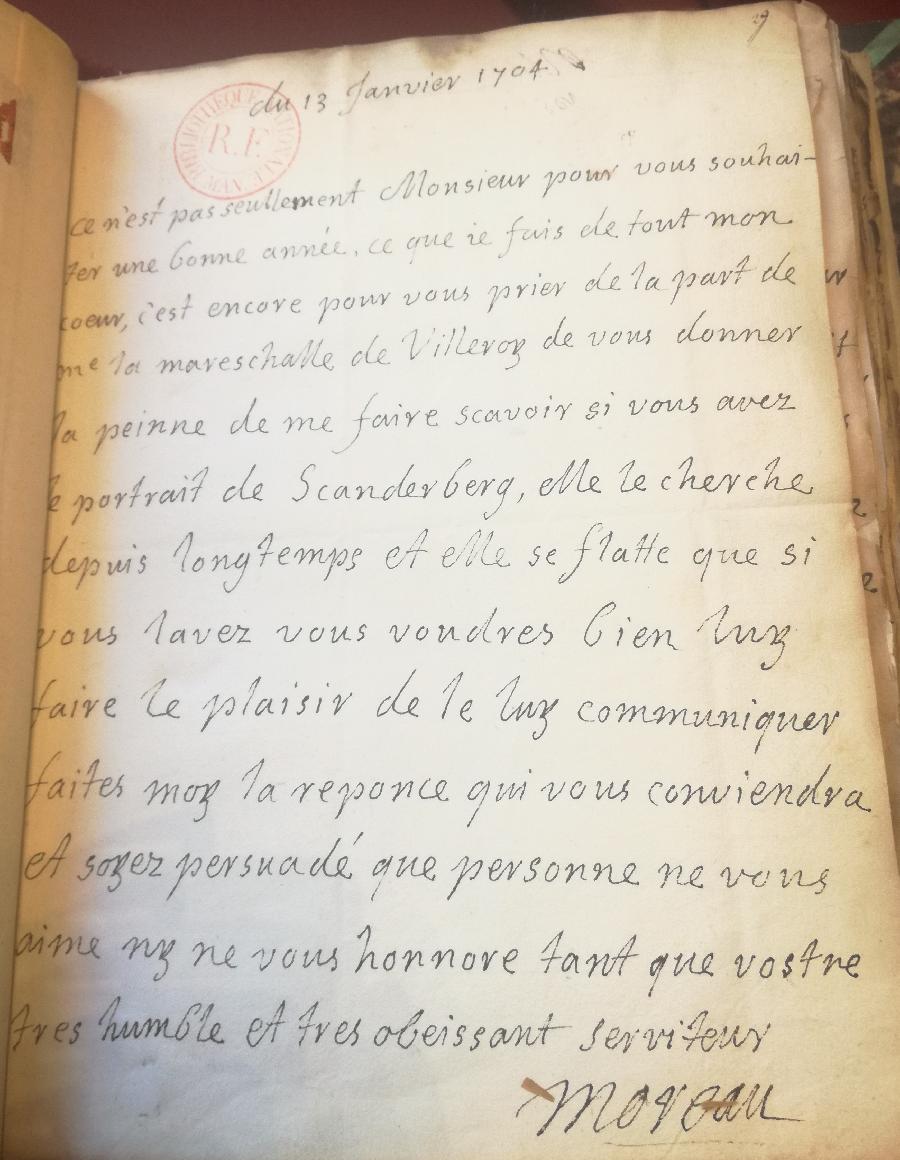 9
du 13 Janvier 1704
BIBLIOTHEQUE NATIONALE MAN. R.F.
ce n'est pas seullement Monsieur pour vous souhai-
ter une bonne année, ce que ie fais de tout mon
coeur, c'est encore pour vous prier de la part de
me la mareschalle de Villeroy de vous donner
la peinne de me faire scavoir si vous avez
le portrait de Scanderberg, elle le cherche
depuis longtemps et elle se flatte que si
vous lavez vous voudres bien luy
faire le plaisir de le luy communiquer
faites moy la reponce qui vous conviendra
et soyez persuadé que personne ne vous
aime ny ne vous honnore tant que vostre
tres humble et tres obeissant serviteur
Moreau